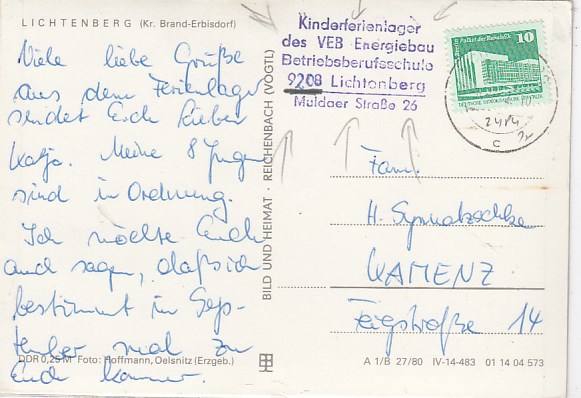 LICHTENBERG (Kr. Brand-Erbisdorf)
Viele liebe Grüße
aus dem Ferienlager
sendet Euch lieber
Katja. Meine 8 Jungen
sind in Ordnung.
Ich möchte Euch
auch sagen, daß ich
bestimmt im Sep-
tember mal zu
Euch komme.
DDR 0,25 M Foto: Hoffmann, Oelsnitz (Erzgeb.)
BILD UND HEIMAT · REICHENBACH (VOGTL)
Kinderferienlager
des VEB Energiebau
Betriebsberufsschule
9208 Lichtenberg
Muldaer Straße 26
10
2414
c
Fam.
H. Symmatzschke
KAMENZ
Feigstraße 14
A 1/B 27/80 IV-14-483 01 14 04 573